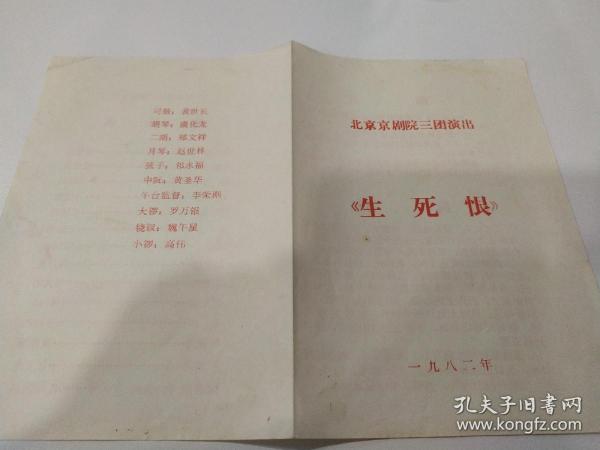 司鼓：黄世长
胡琴：虞化龙
二胡：郑文祥
月琴：赵世林
弦子：祁永福
中阮：黄圣华
午台监督：李荣刚
大锣：罗万银
铙钹：魏午星
小锣：高伟
北京京剧院三团演出
《生死恨》
一九八二年
孔夫子旧书网
www.kongfz.com